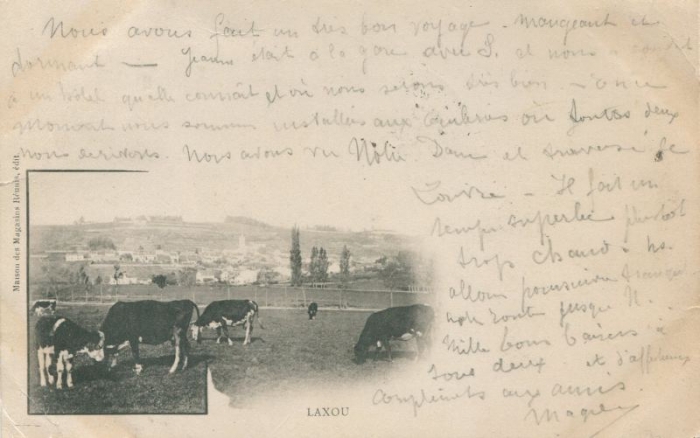 Nous avons fait un très bon voyage - mangeant et
dormant — Jeanne était à la gare avec S. et nous a conduit
à un hôtel qu'elle connaît et où nous serons très bien - en ce
moment nous sommes installées aux où toutes deux
nous Nous avons vu Notre Dame et traversé le
Louvre - Il fait un
temps superbe plutôt
trop chaud - ns.
allons poursuivre
jusque N.
Mille bons baisers à
tous deux et d'affectueux
compliments aux amis.
LAXOU
Maison des Magasins Réunis, édit.